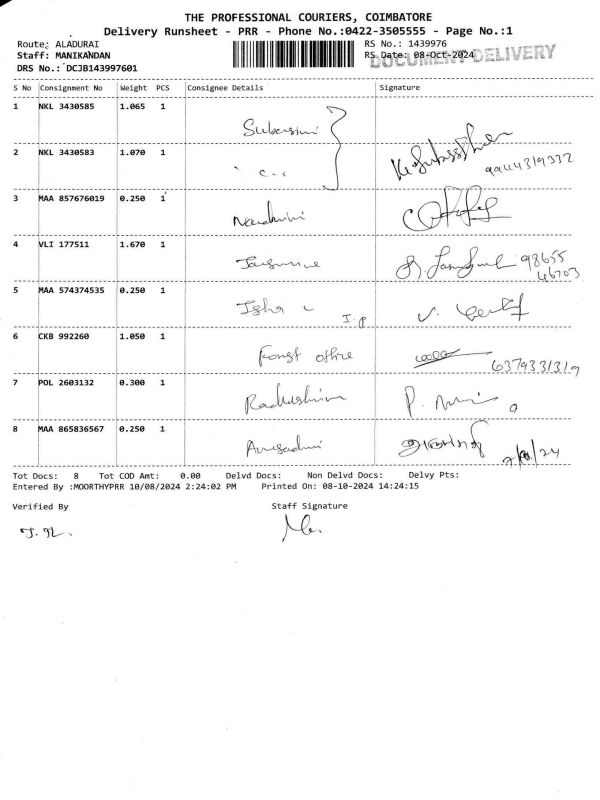 THE PROFESSIONAL COURIERS, COIMBATORE
Delivery Runsheet - PRR - Phone No.:0422-3505555 - Page No.:1
Route: ALADURAI RS No.: 1439976
Staff: MANIKANDAN RS Date: 08-Oct-2024
DOCUMENT DELIVERY
DRS No.: DCJB143997601
S No Consignment No Weight PCS Consignee Details Signature
1 NKL 3430585 1.065 1
2 NKL 3430583 1.070 1 9944319332
3 MAA 857676019 0.250 1
4 VLI 177511 1.670 1 98655
46703
5 MAA 574374535 0.250 1 Isha
6 CKB 992260 1.050 1 Forest office 6379331319
7 POL 2603132 0.300 1
8 MAA 865836567 0.250 1
Tot Docs: 8 Tot COD Amt: 0.00 Delvd Docs: Non Delvd Docs: Delvy Pts:
Entered By :MOORTHYPRR 10/08/2024 2:24:02 PM Printed On: 08-10-2024 14:24:15
Verified By Staff Signature